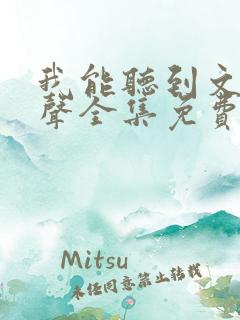 我能聽到文
聲全集免費
Mitsu
未经同意禁止转载